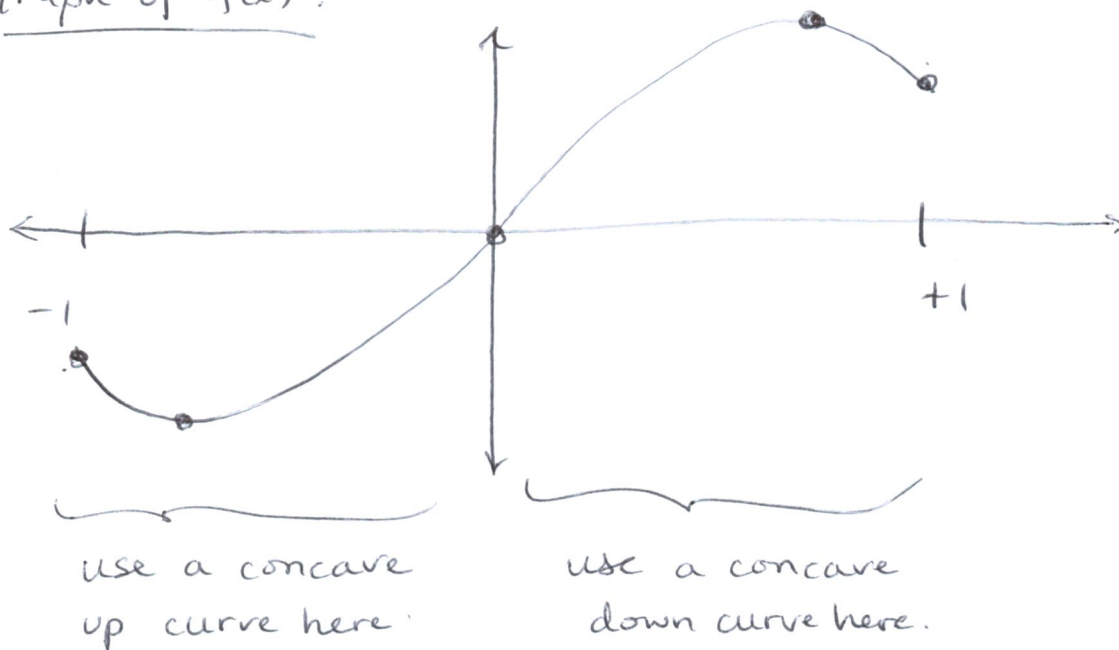 Graph of f(x):
-1
+1
use a concave
up curve here.
use a concave
down curve here.